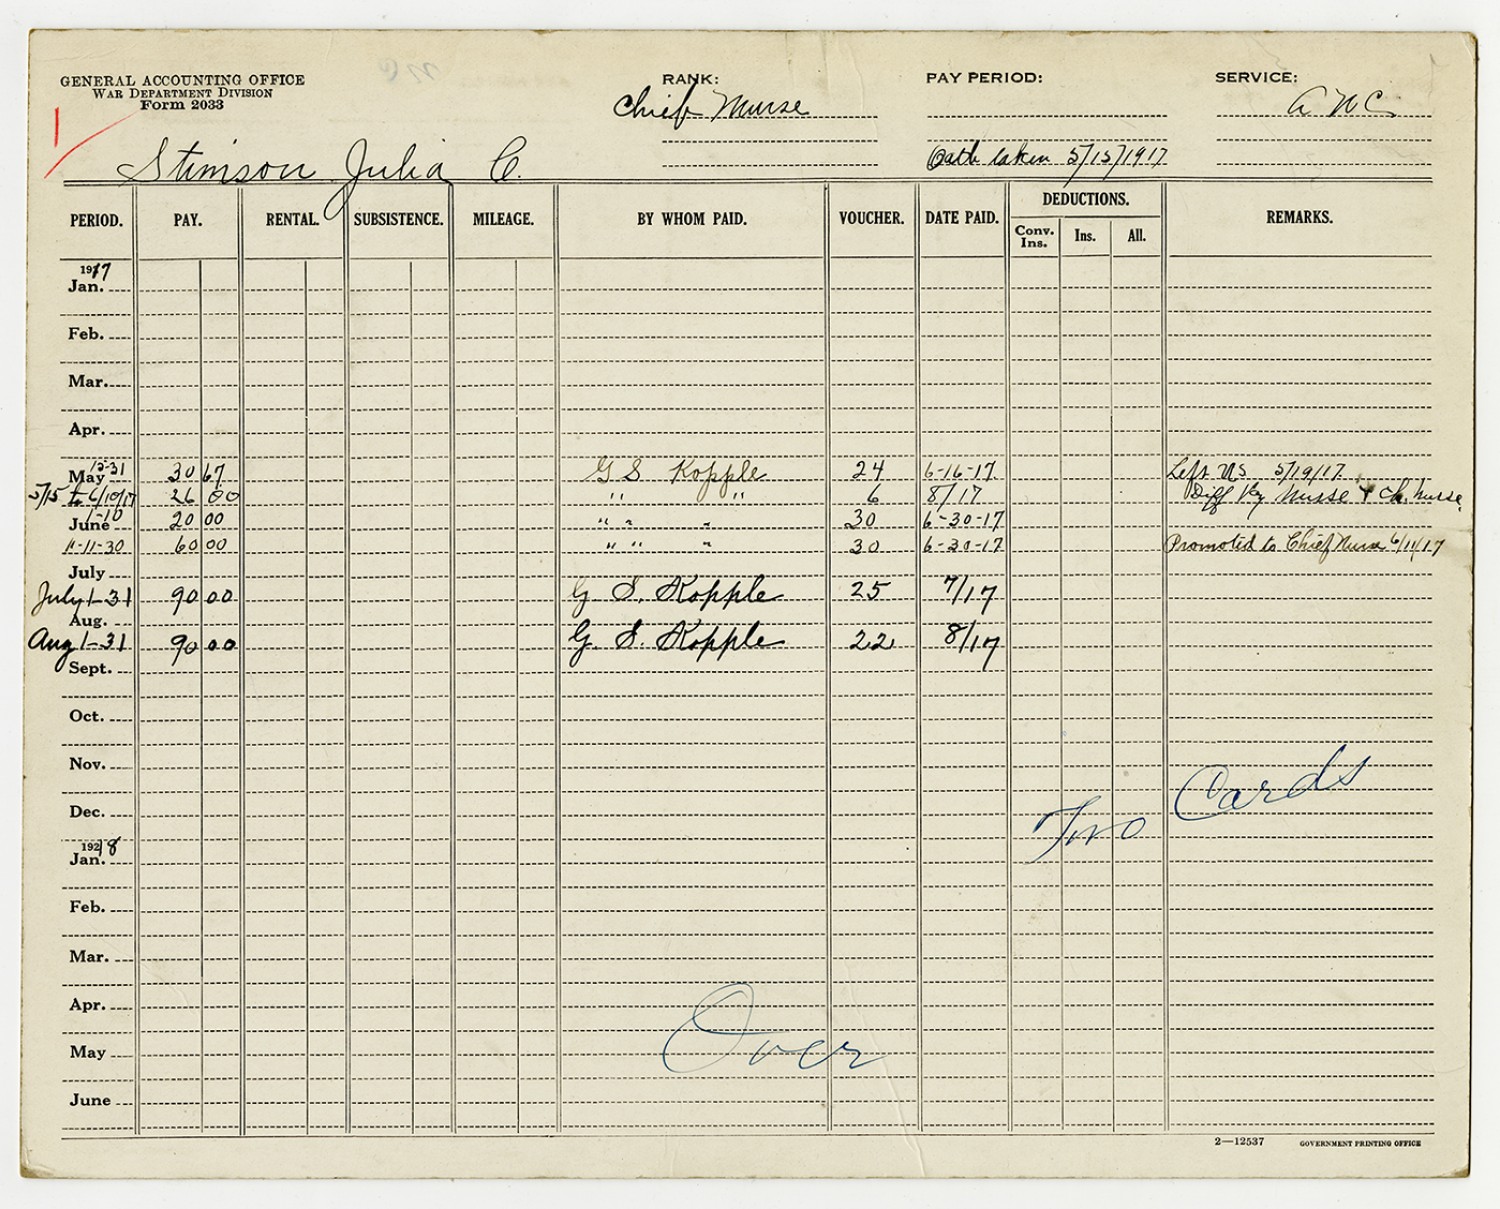 GENERAL ACCOUNTING OFFICE
WAR DEPARTMENT DIVISION
Form 2033
RANK: Chief Nurse
PAY PERIOD:
SERVICE: A N C
Oath taken 5/15/1917
Stimson Julia C.
PERIOD. PAY. RENTAL. SUBSISTENCE. MILEAGE. BY WHOM PAID. VOUCHER. DATE PAID. DEDUCTIONS. REMARKS.
Conv. Ins. Ins. All.
1917
Jan.
Feb.
Mar.
Apr.
May 15-31 30 67 G S Kopple 24 6-16-17 Left US 5/19/17
5/15 to 6/10/17 26 00 " " 6 8/17 Diff Nurse & Ch. Nurse.
June 1-10 20 00 " " " 30 6-30-17
"-11-30 60 00 " " " 30 6-30-17 Promoted to Chief Nurse 6/11/17
July
July 1-31 90 00 G. S. Kopple 25 7/17
Aug.
Aug 1-31 90 00 G. S. Kopple 22 8/17
Sept.
Oct.
Nov.
Dec.
Two Cards
1918
Jan.
Feb.
Mar.
Apr.
Over
May
June
2—12537 GOVERNMENT PRINTING OFFICE